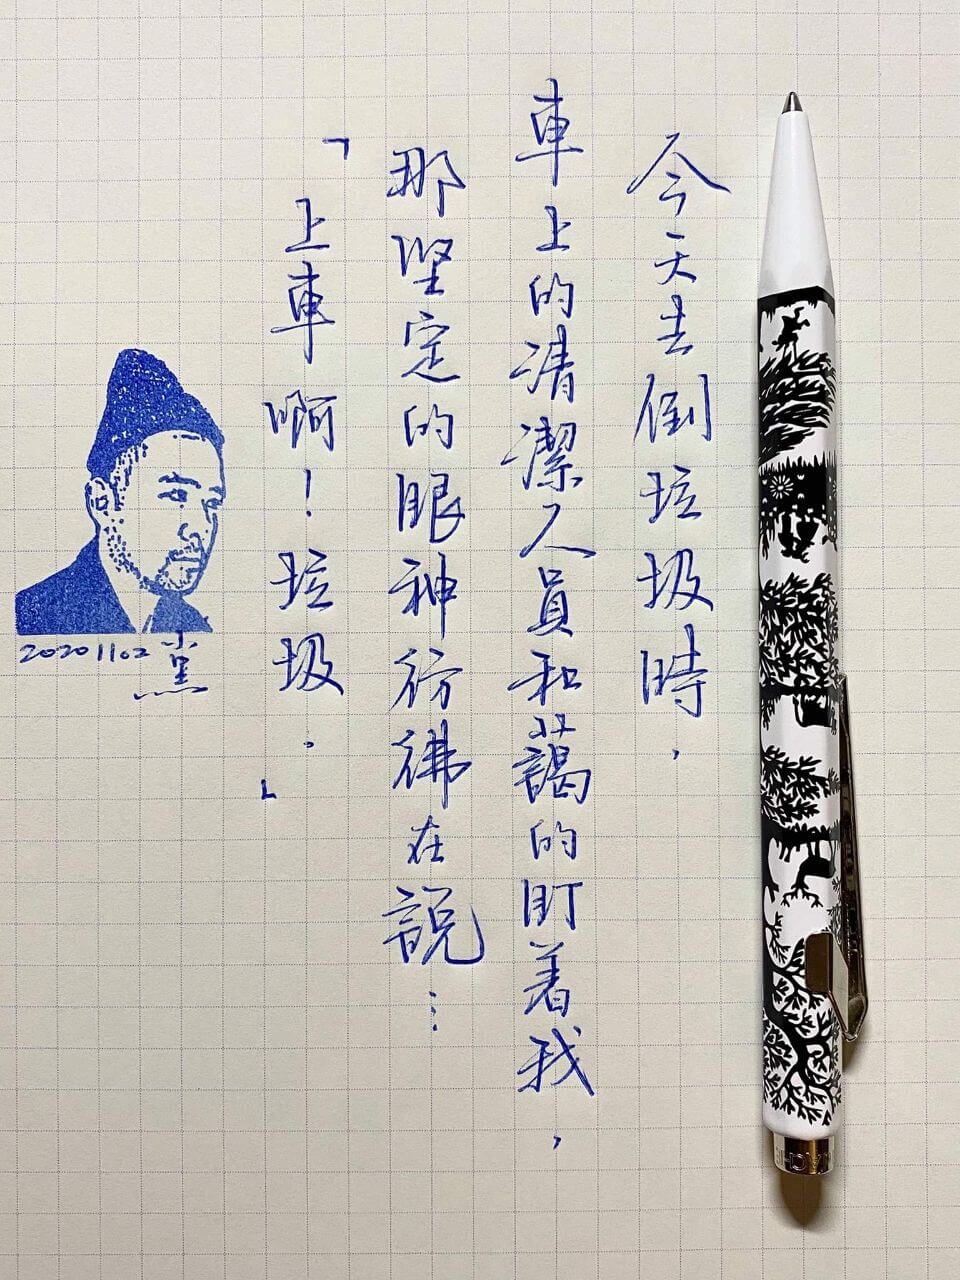 今天去倒垃圾時，
車上的清潔人員和藹的盯着我，
那堅定的眼神彷彿在說⋯
「上車啊！垃圾。」
20201102